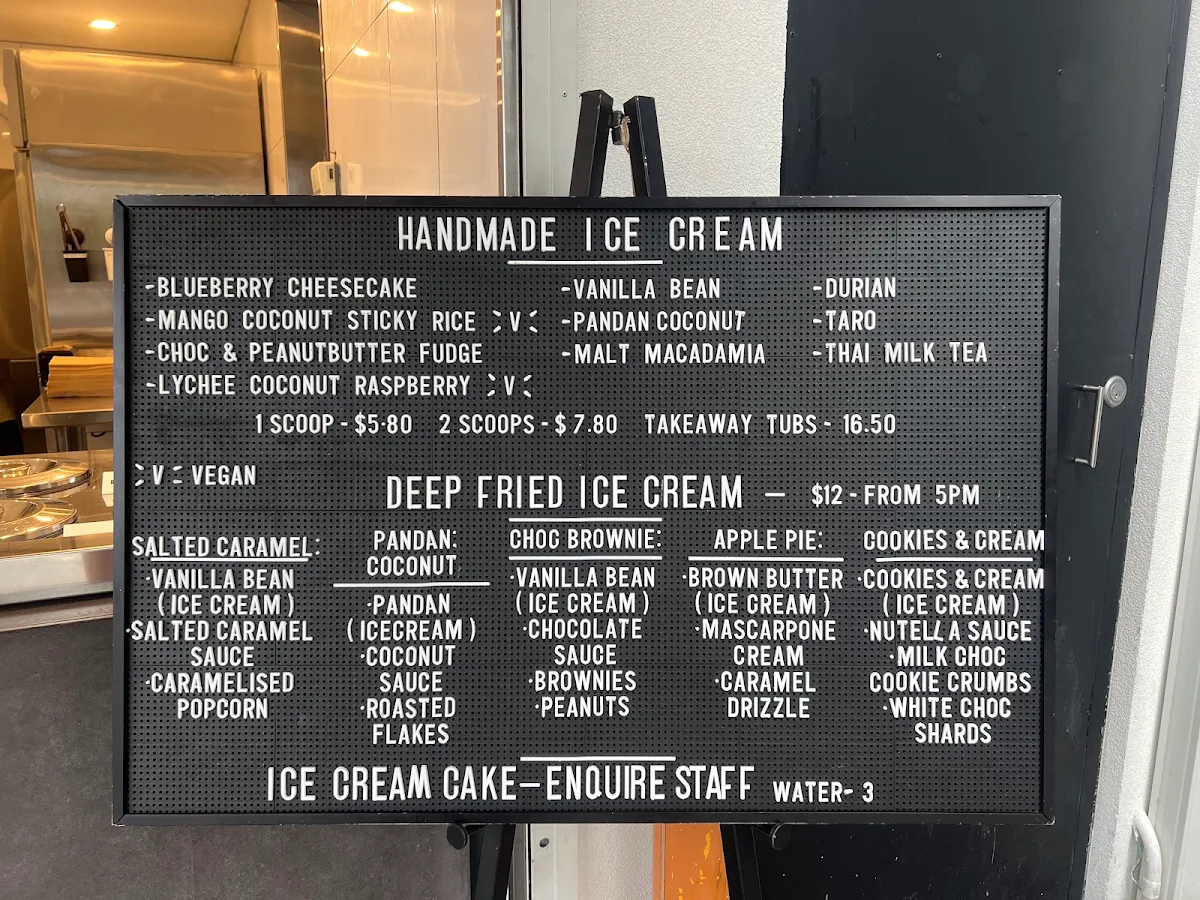 HANDMADE ICE CREAM
-BLUEBERRY CHEESECAKE
-MANGO COCONUT STICKY RICE :V:
-CHOC & PEANUTBUTTER FUDGE
-LYCHEE COCONUT RASPBERRY :V:
-VANILLA BEAN
-PANDAN COCONUT
-MALT MACADAMIA
-DURIAN
-TARO
-THAI MILK TEA
1 SCOOP - $5.80 2 SCOOPS - $7.80 TAKEAWAY TUBS - 16.50
:V: VEGAN
DEEP FRIED ICE CREAM – $12 - FROM 5PM
SALTED CARAMEL:
·VANILLA BEAN
(ICE CREAM)
·SALTED CARAMEL
SAUCE
·CARAMELISED
POPCORN
PANDAN:
COCONUT
·PANDAN
(ICECREAM)
·COCONUT
SAUCE
·ROASTED
FLAKES
CHOC BROWNIE:
·VANILLA BEAN
(ICE CREAM)
·CHOCOLATE
SAUCE
·BROWNIES
·PEANUTS
APPLE PIE:
·BROWN BUTTER
(ICE CREAM)
·MASCARPONE
CREAM
·CARAMEL
DRIZZLE
COOKIES & CREAM
·COOKIES & CREAM
(ICE CREAM)
·NUTELLA SAUCE
·MILK CHOC
COOKIE CRUMBS
·WHITE CHOC
SHARDS
ICE CREAM CAKE – ENQUIRE STAFF WATER- 3